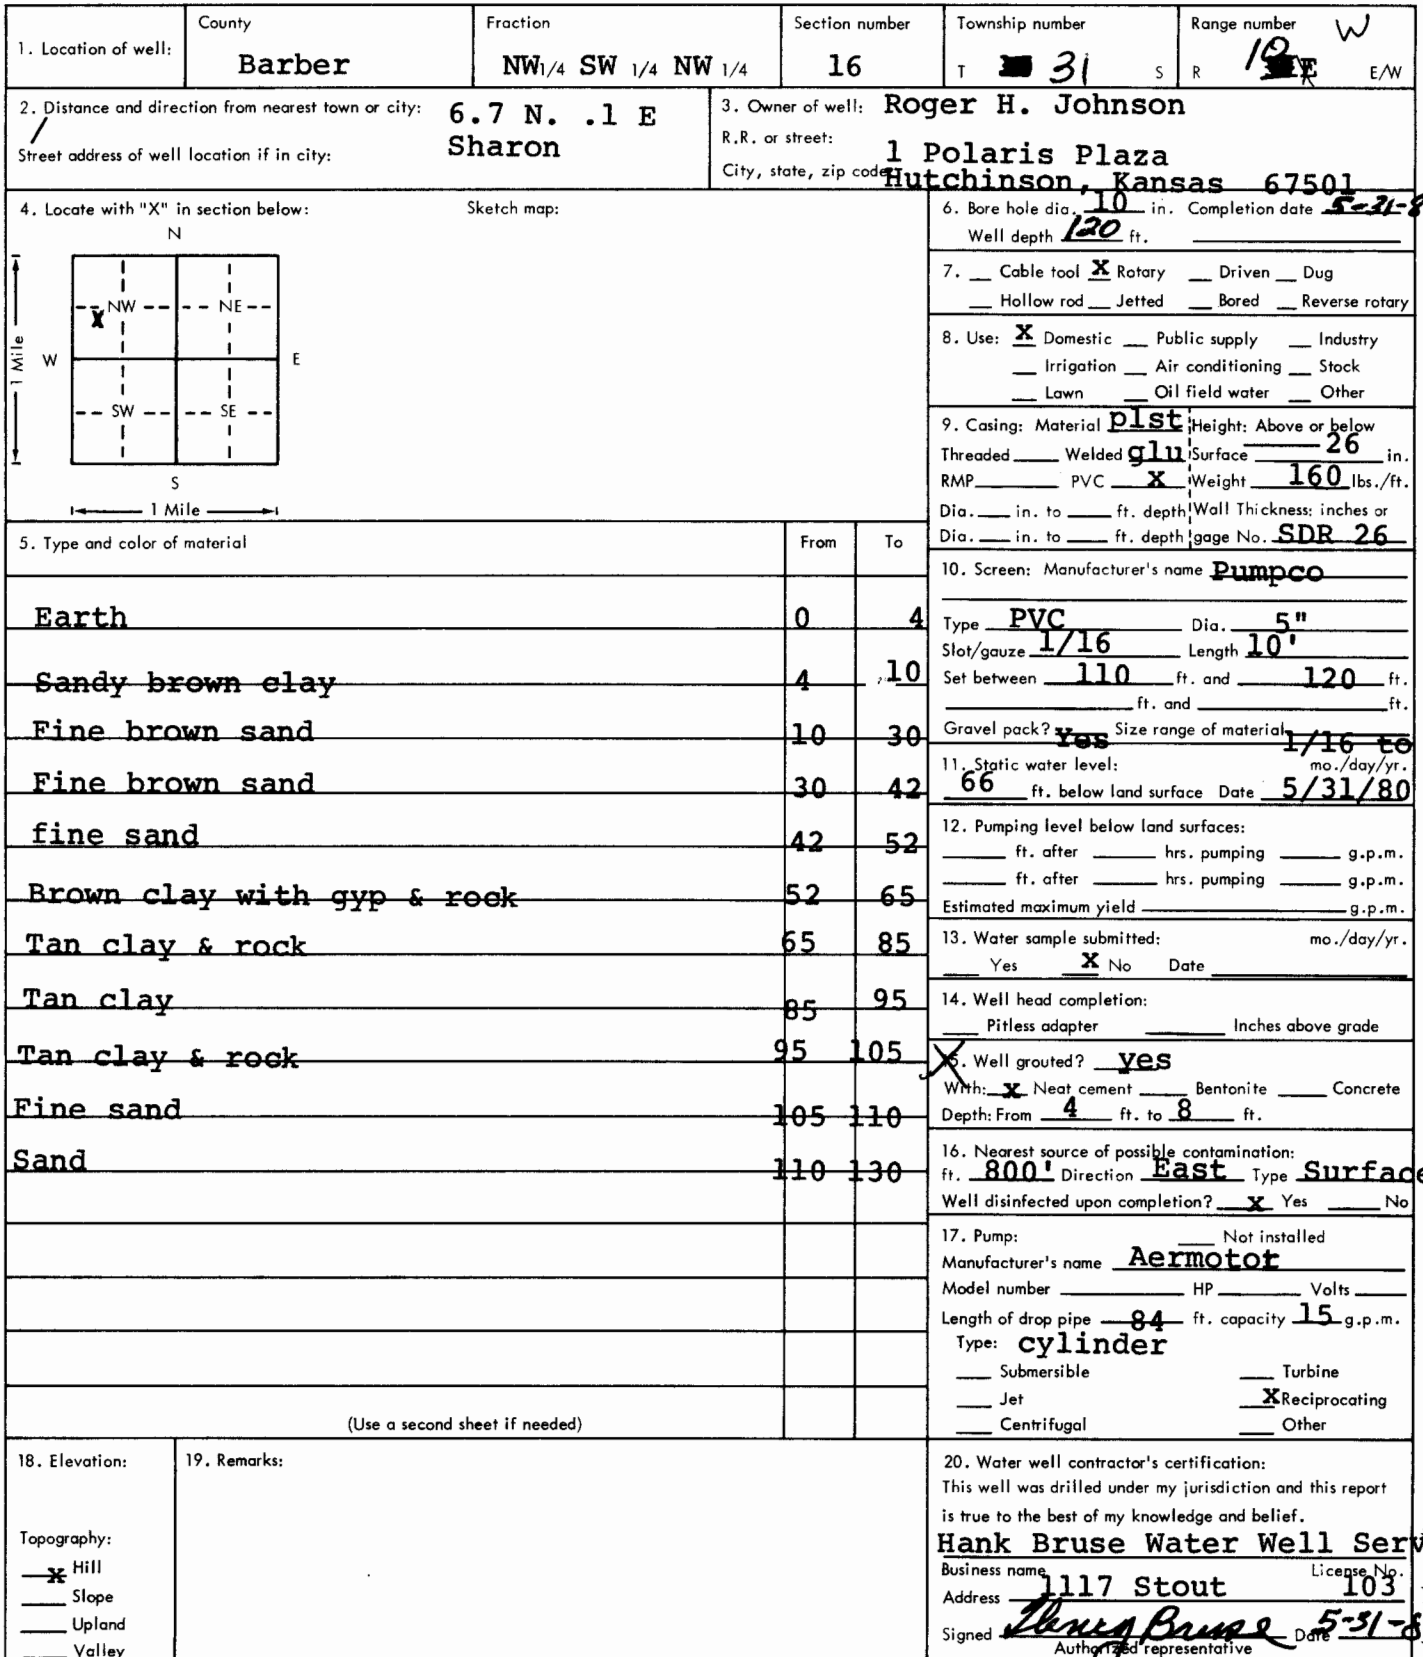 1. Location of well:
County
Barber
Fraction
NW 1/4 SW 1/4 NW 1/4
Section number
16
Township number
T 31 S
Range number
R 10 W E/W
2. Distance and direction from nearest town or city: 6.7 N. .1 E
Sharon
Street address of well location if in city:
3. Owner of well: Roger H. Johnson
R.R. or street: 1 Polaris Plaza
City, state, zip code: Hutchinson, Kansas 67501
4. Locate with "X" in section below:
Sketch map:
N
NW NE
X
W E
1 Mile
SW SE
S
1 Mile
5. Type and color of material From To
Earth 0 4
Sandy brown clay 4 10
Fine brown sand 10 30
Fine brown sand 30 42
fine sand 42 52
Brown clay with gyp & rock 52 65
Tan clay & rock 65 85
Tan clay 85 95
Tan clay & rock 95 105
Fine sand 105 110
Sand 110 130
(Use a second sheet if needed)
6. Bore hole dia. 10 in. Completion date 5-31-8
Well depth 120 ft.
7. __ Cable tool X Rotary __ Driven __ Dug
__ Hollow rod __ Jetted __ Bored __ Reverse rotary
8. Use: X Domestic __ Public supply __ Industry
__ Irrigation __ Air conditioning __ Stock
__ Lawn __ Oil field water __ Other
9. Casing: Material plst Height: Above or below
Threaded ____ Welded glu Surface 26 in.
RMP ____ PVC X Weight 160 lbs./ft.
Dia. ___ in. to ___ ft. depth Wall Thickness: inches or
Dia. ___ in. to ___ ft. depth gage No. SDR 26
10. Screen: Manufacturer's name Pumpco
Type PVC Dia. 5"
Slot/gauze 1/16 Length 10'
Set between 110 ft. and 120 ft.
____ ft. and ____ ft.
Gravel pack? Yes Size range of material 1/16 to
11. Static water level: mo./day/yr.
66 ft. below land surface Date 5/31/80
12. Pumping level below land surfaces:
____ ft. after ____ hrs. pumping ____ g.p.m.
____ ft. after ____ hrs. pumping ____ g.p.m.
Estimated maximum yield ____ g.p.m.
13. Water sample submitted: mo./day/yr.
__ Yes X No Date ____
14. Well head completion:
__ Pitless adapter ____ Inches above grade
15. Well grouted? yes
With: X Neat cement ____ Bentonite ____ Concrete
Depth: From 4 ft. to 8 ft.
16. Nearest source of possible contamination:
ft. 800' Direction East Type Surface
Well disinfected upon completion? X Yes ____ No
17. Pump: ____ Not installed
Manufacturer's name Aermotor
Model number ____ HP ____ Volts ____
Length of drop pipe 84 ft. capacity 15 g.p.m.
Type: cylinder
__ Submersible __ Turbine
__ Jet X Reciprocating
__ Centrifugal __ Other
18. Elevation:
Topography:
X Hill
__ Slope
__ Upland
__ Valley
19. Remarks:
20. Water well contractor's certification:
This well was drilled under my jurisdiction and this report
is true to the best of my knowledge and belief.
Hank Bruse Water Well Serv
Business name License No.
Address 1117 Stout 103
Signed Henry Bruse Date 5-31-8
Authorized representative